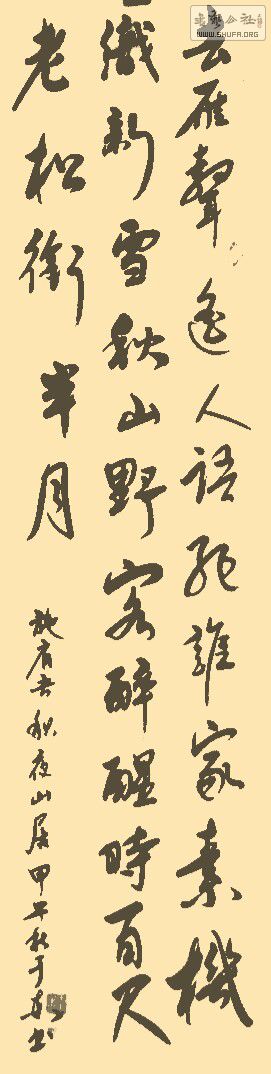 書法公社
WWW.SHUFA.ORG
去雁聲遙人語絕誰家素機
織新雪秋山野客醉醒時百尺
老松銜半月
施肩吾秋夜山居甲午秋于